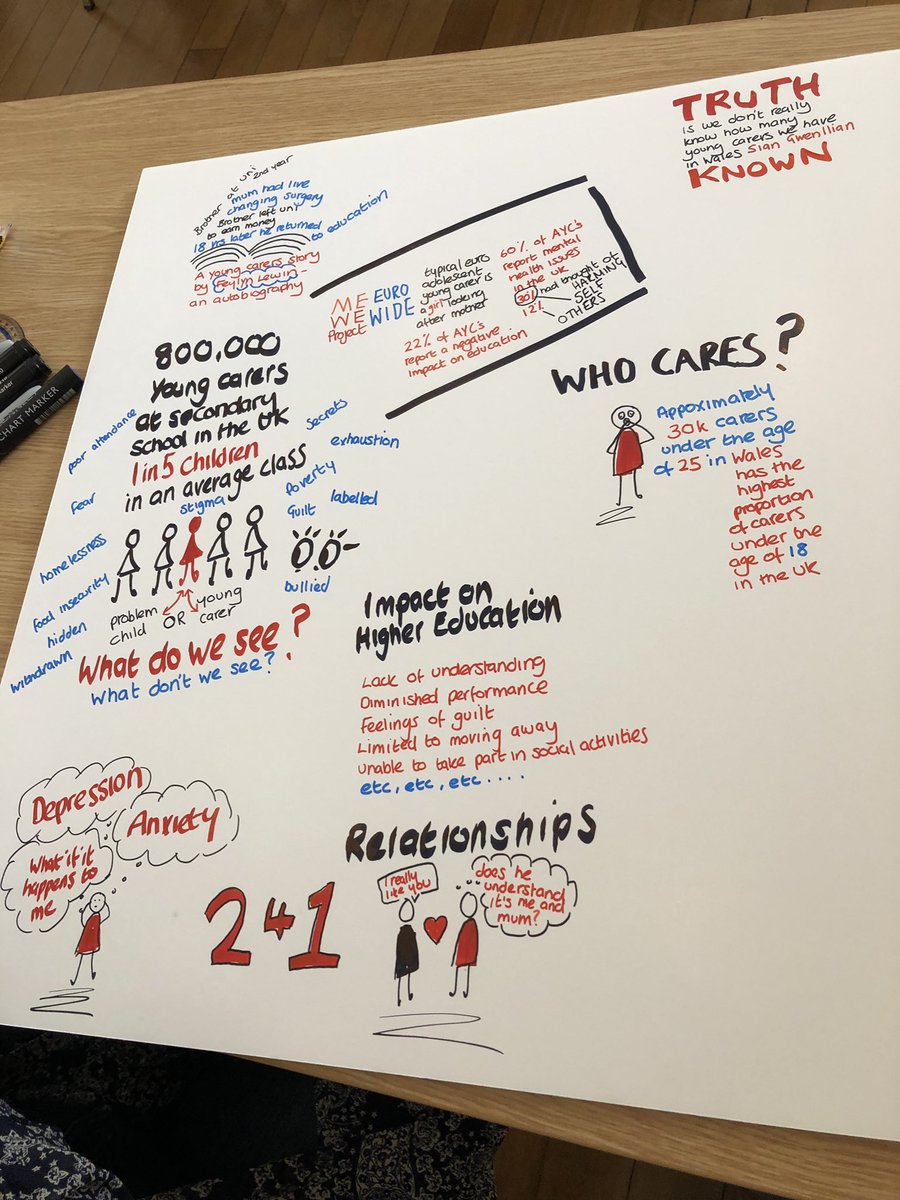 TRUTH
is we don't really
know how many
young carers we have
in Wales Sian Gwenllian
KNOWN
Brother at uni 2nd year
mum had live
changing surgery
Brother left uni
to earn money
18 yrs later he returned
to education
A young carers story
by Feylyn Lewin -
an autobiography
ME
WE
Project
EURO
WIDE
typical euro
adolescent
young carer is
a girl looking
after mother
60% of AYC's
report mental
health issues
in the UK
30% had thought of
12%
HARMING
SELF
OTHERS
22% of AYC's
report a negative
impact on education
800,000
Young carers
at secondary
school in the UK
1 in 5 children
in an average class
poor attendance
fear
homelessness
food insecurity
hidden
withdrawn
stigma
secrets
exhaustion
poverty
guilt
labelled
bullied
problem
child
OR
young
carer
What do we see?
What don't we see?
WHO CARES?
Appoximately
30k carers
under the age
of 25 in Wales
has the
highest
proportion
of carers
under the
age of 18
in the UK
Impact on
Higher Education
Lack of understanding
Diminished performance
Feelings of guilt
Limited to moving away
unable to take part in social activities
etc, etc, etc ....
Depression
Anxiety
What if it
happens to
me
2 4 1
Relationships
I really
like you
does he
understand
it's me and
mum?
CHART MARKER